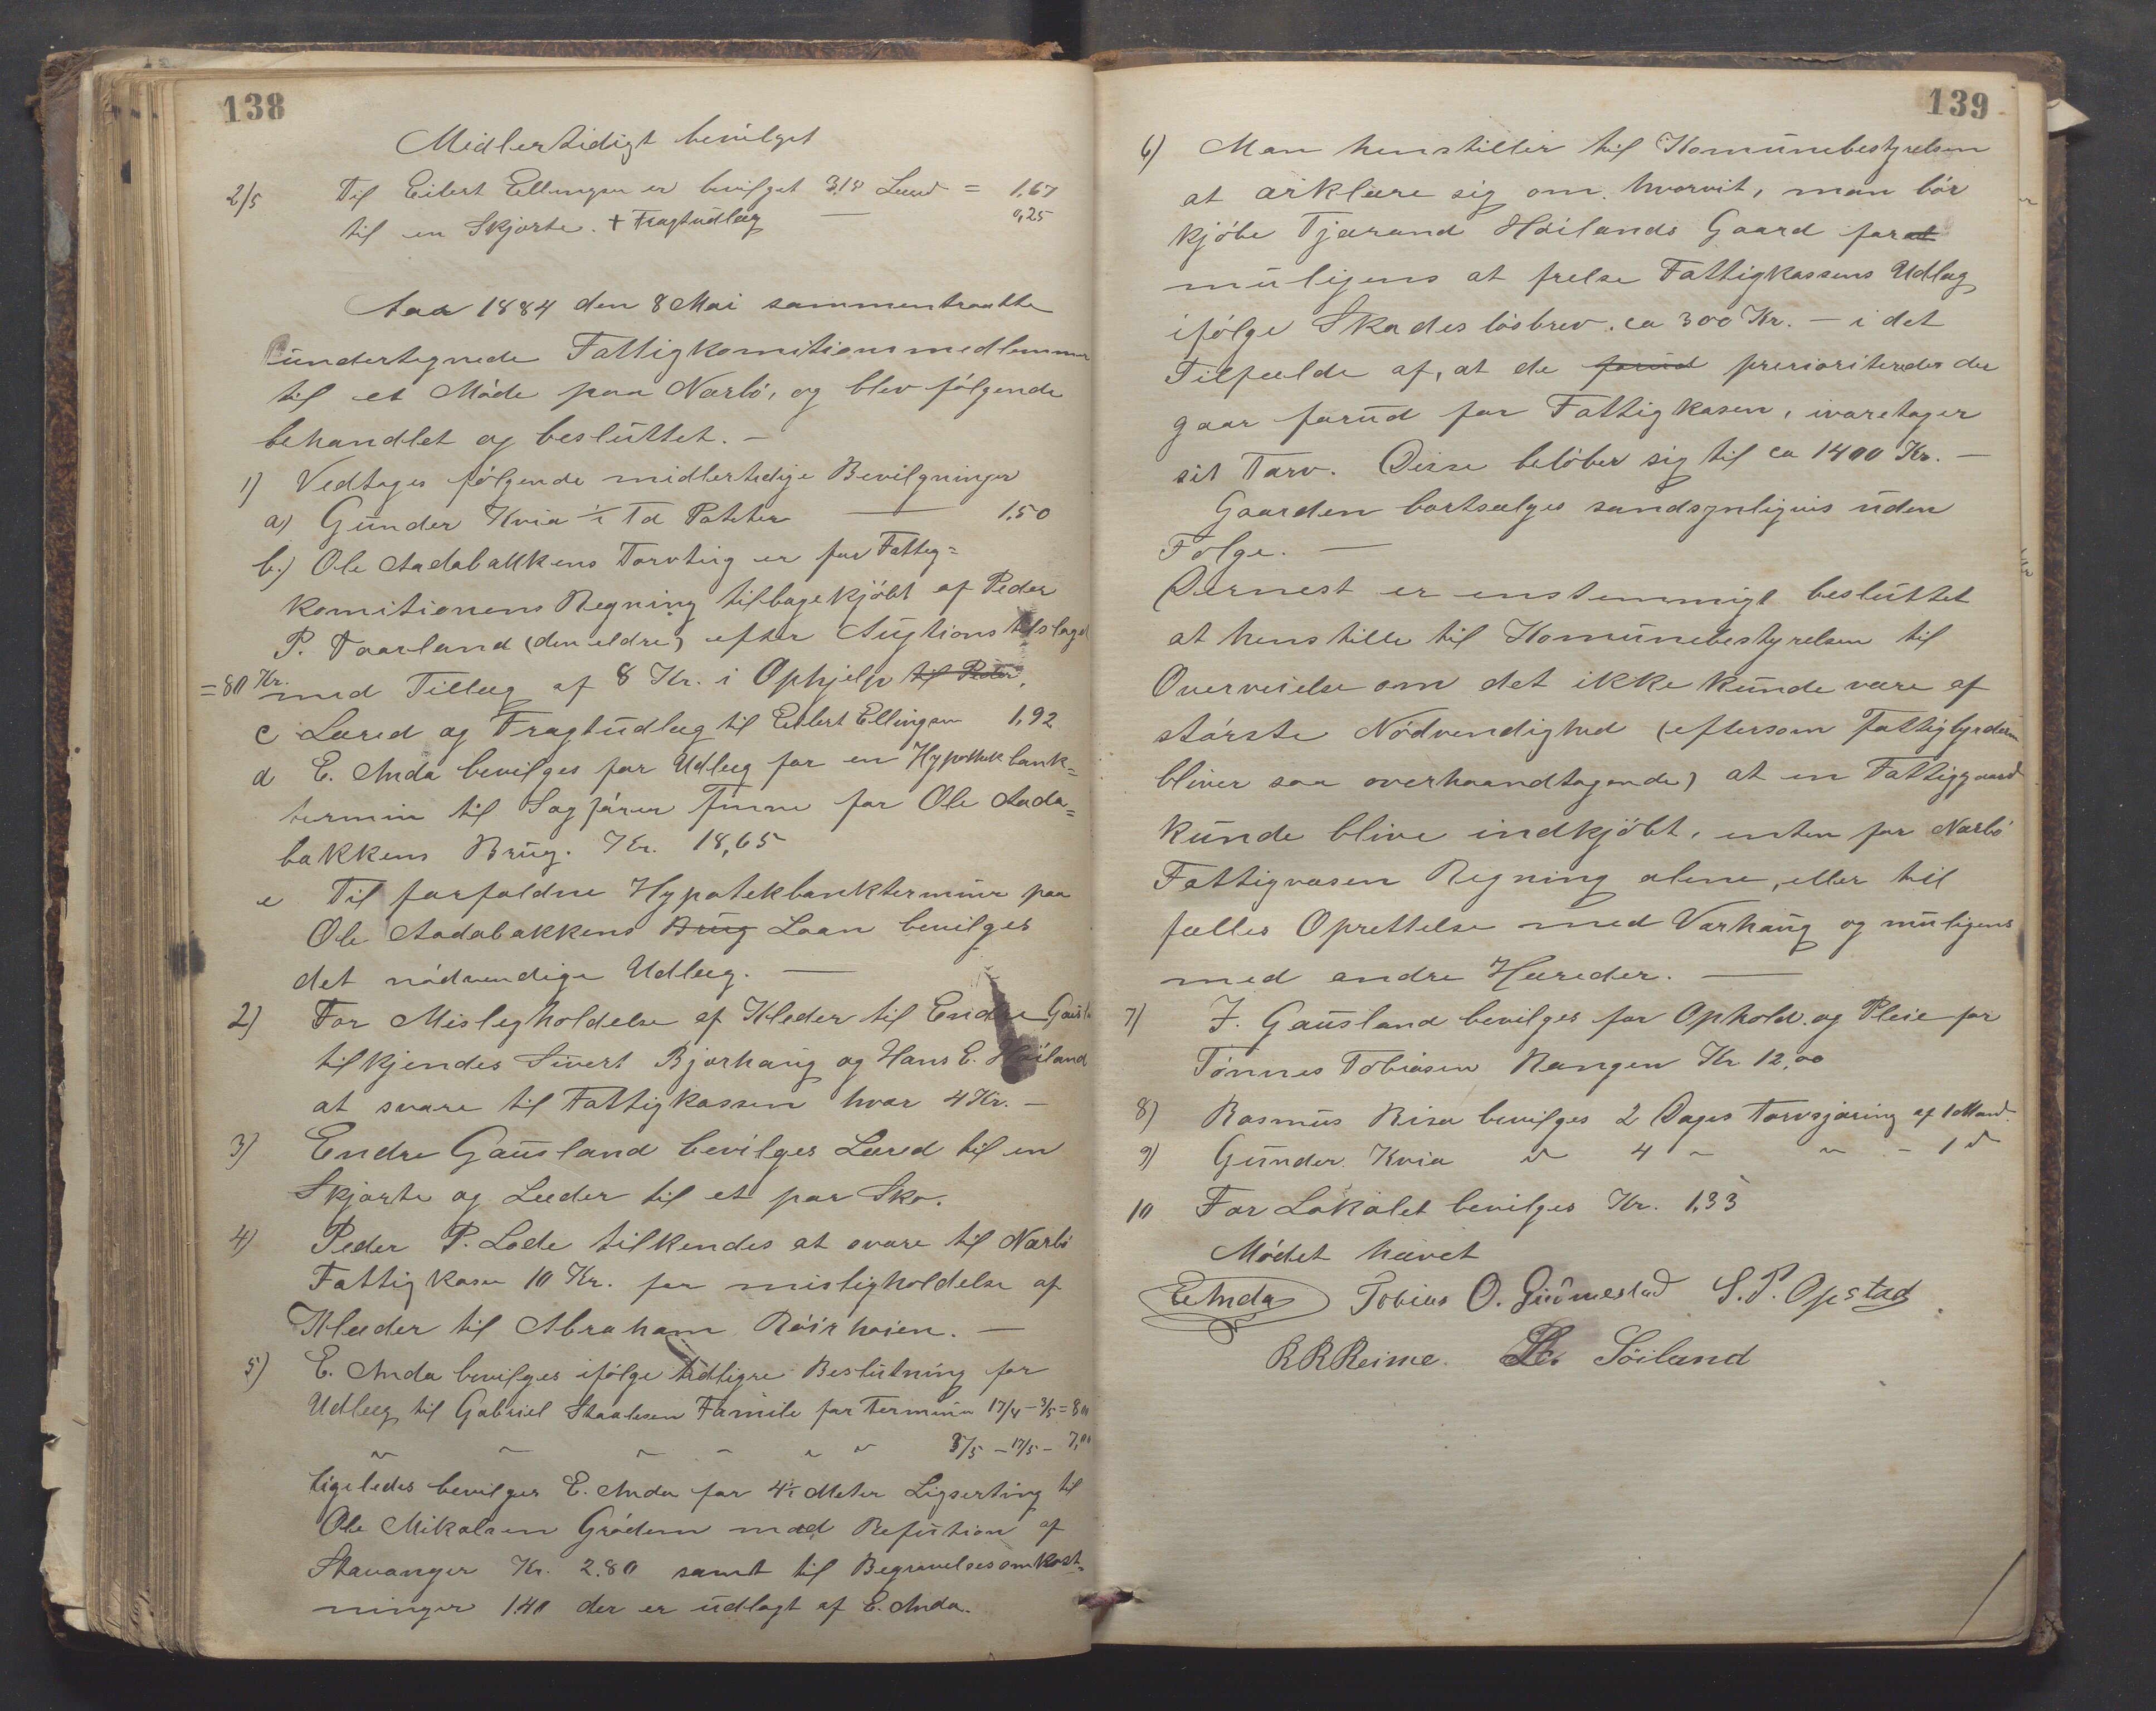 138
Midlertidigt bevilget
2/5 Til Eilert Ellingsen er bevilget Lærred = 1,67
til en Skjorte. + Fragtudlæg — 0,25
Aar 1884 den 8 Mai sammentraatte
undertegnede Fattigkomitionsmedlemmer
til et Møde paa Nærbø, og blev følgende
behandlet og besluttet. —
1) Vedtages følgende midlertidige Bevilgninger
a) Gunder Kvia 1/2 Td Poteter — 1,50
b.) Ole Aadabakkens Torvting er for Fattig=
komitionens Regning tilbagekjøbt af Peder
P. Taarland (den eldre) efter Augtionstilslaget
=80 Kr. med Tillæg af 8 Kr. i Ophjelp til Peder,
c Lærred og Fragtudlæg til Eilert Ellingsen 1,92
d E. Anda bevilges for Udlæg for en Hypothekbank=
termin til Sagfører Finne for Ole Aada=
bakkens Brug. Kr. 18,65
e Til forfaldne Hypotekbanktermine paa
Ole Aadabakkens Brug Laan bevilges
det nødvendige Udlæg. —
2) For Misligholdelse af Klæder til Endre Gausl
tilkjendes Sivert Bjorhaug og Hans E. Høiland
at svare til Fattigkassen hver 4 Kr. —
3) Endre Gausland bevilges Lærred til en
Skjorte og Læder til et par Sko.
4) Peder P. Lode tilkendes at svare til Nærbø
Fattigkasse 10 Kr. for misligholdelse af
Klæder til Abraham —
5) E. Anda bevilges ifølge tidligre Beslutning for
Udlæg til Gabriel Staalesen Familie for Termine 17/4 – 3/5 = 8,00
" " " " " " 3/5 – 17/5 – 7,00
ligeledes bevilges E. Anda for 4 1/2 Meter Ligserting til
Ole Mikalsen Grødem med Refution af
Stavanger Kr. 2.80 samt til Begravelsesomkost=
ninger 1.40 der er udlagt af E. Anda.
139
6) Man henstiller til Komunebestyrelsen
at ærklære sig om, hvorvit, man bør
kjøbe Tjærand Høilands Gaard for at
muligens at frelse Fattigkassens Udlæg
ifølge Skadesløsbrev. ca 300 Kr. – i det
Tilfælde af, at de forud prerioriteredes der
gaar forud for Fattigkasen, ivaretager
sit Tarv. Disse beløber sig til ca 1400 Kr. —
Gaarden bortsælges sandsynligvis uden
Følge. —
Dernest er enstemmigt besluttet
at henstille til Komunebestyrelsen til
Overveielse om det ikke kunde være af
største Nødvendighed (eftersom Fattigbyrden
bliver saa overhaandtagende) at en Fattiggaard
kunde blive indkjøbt, enten for Nærbø
Fattigvæsen Regning alene, eller til
fælles Oprettelse med Varhaug og muligens
med andre Hæreder. —
7) J. Gausland bevilges for Ophold og Pleie for
Tønnes Tobiasen Kr 12,00
8) Rasmus Risa bevilges 2 Dages Torvsjæring af 1 Mand
9) Gunder Kvia " 4 " " – 1 "
10 For Lokalet bevilges Kr. 1,33
Mødet hævet
E Anda Tobias O. Gudmestad S. P. Opstad
R R Reime. Søiland